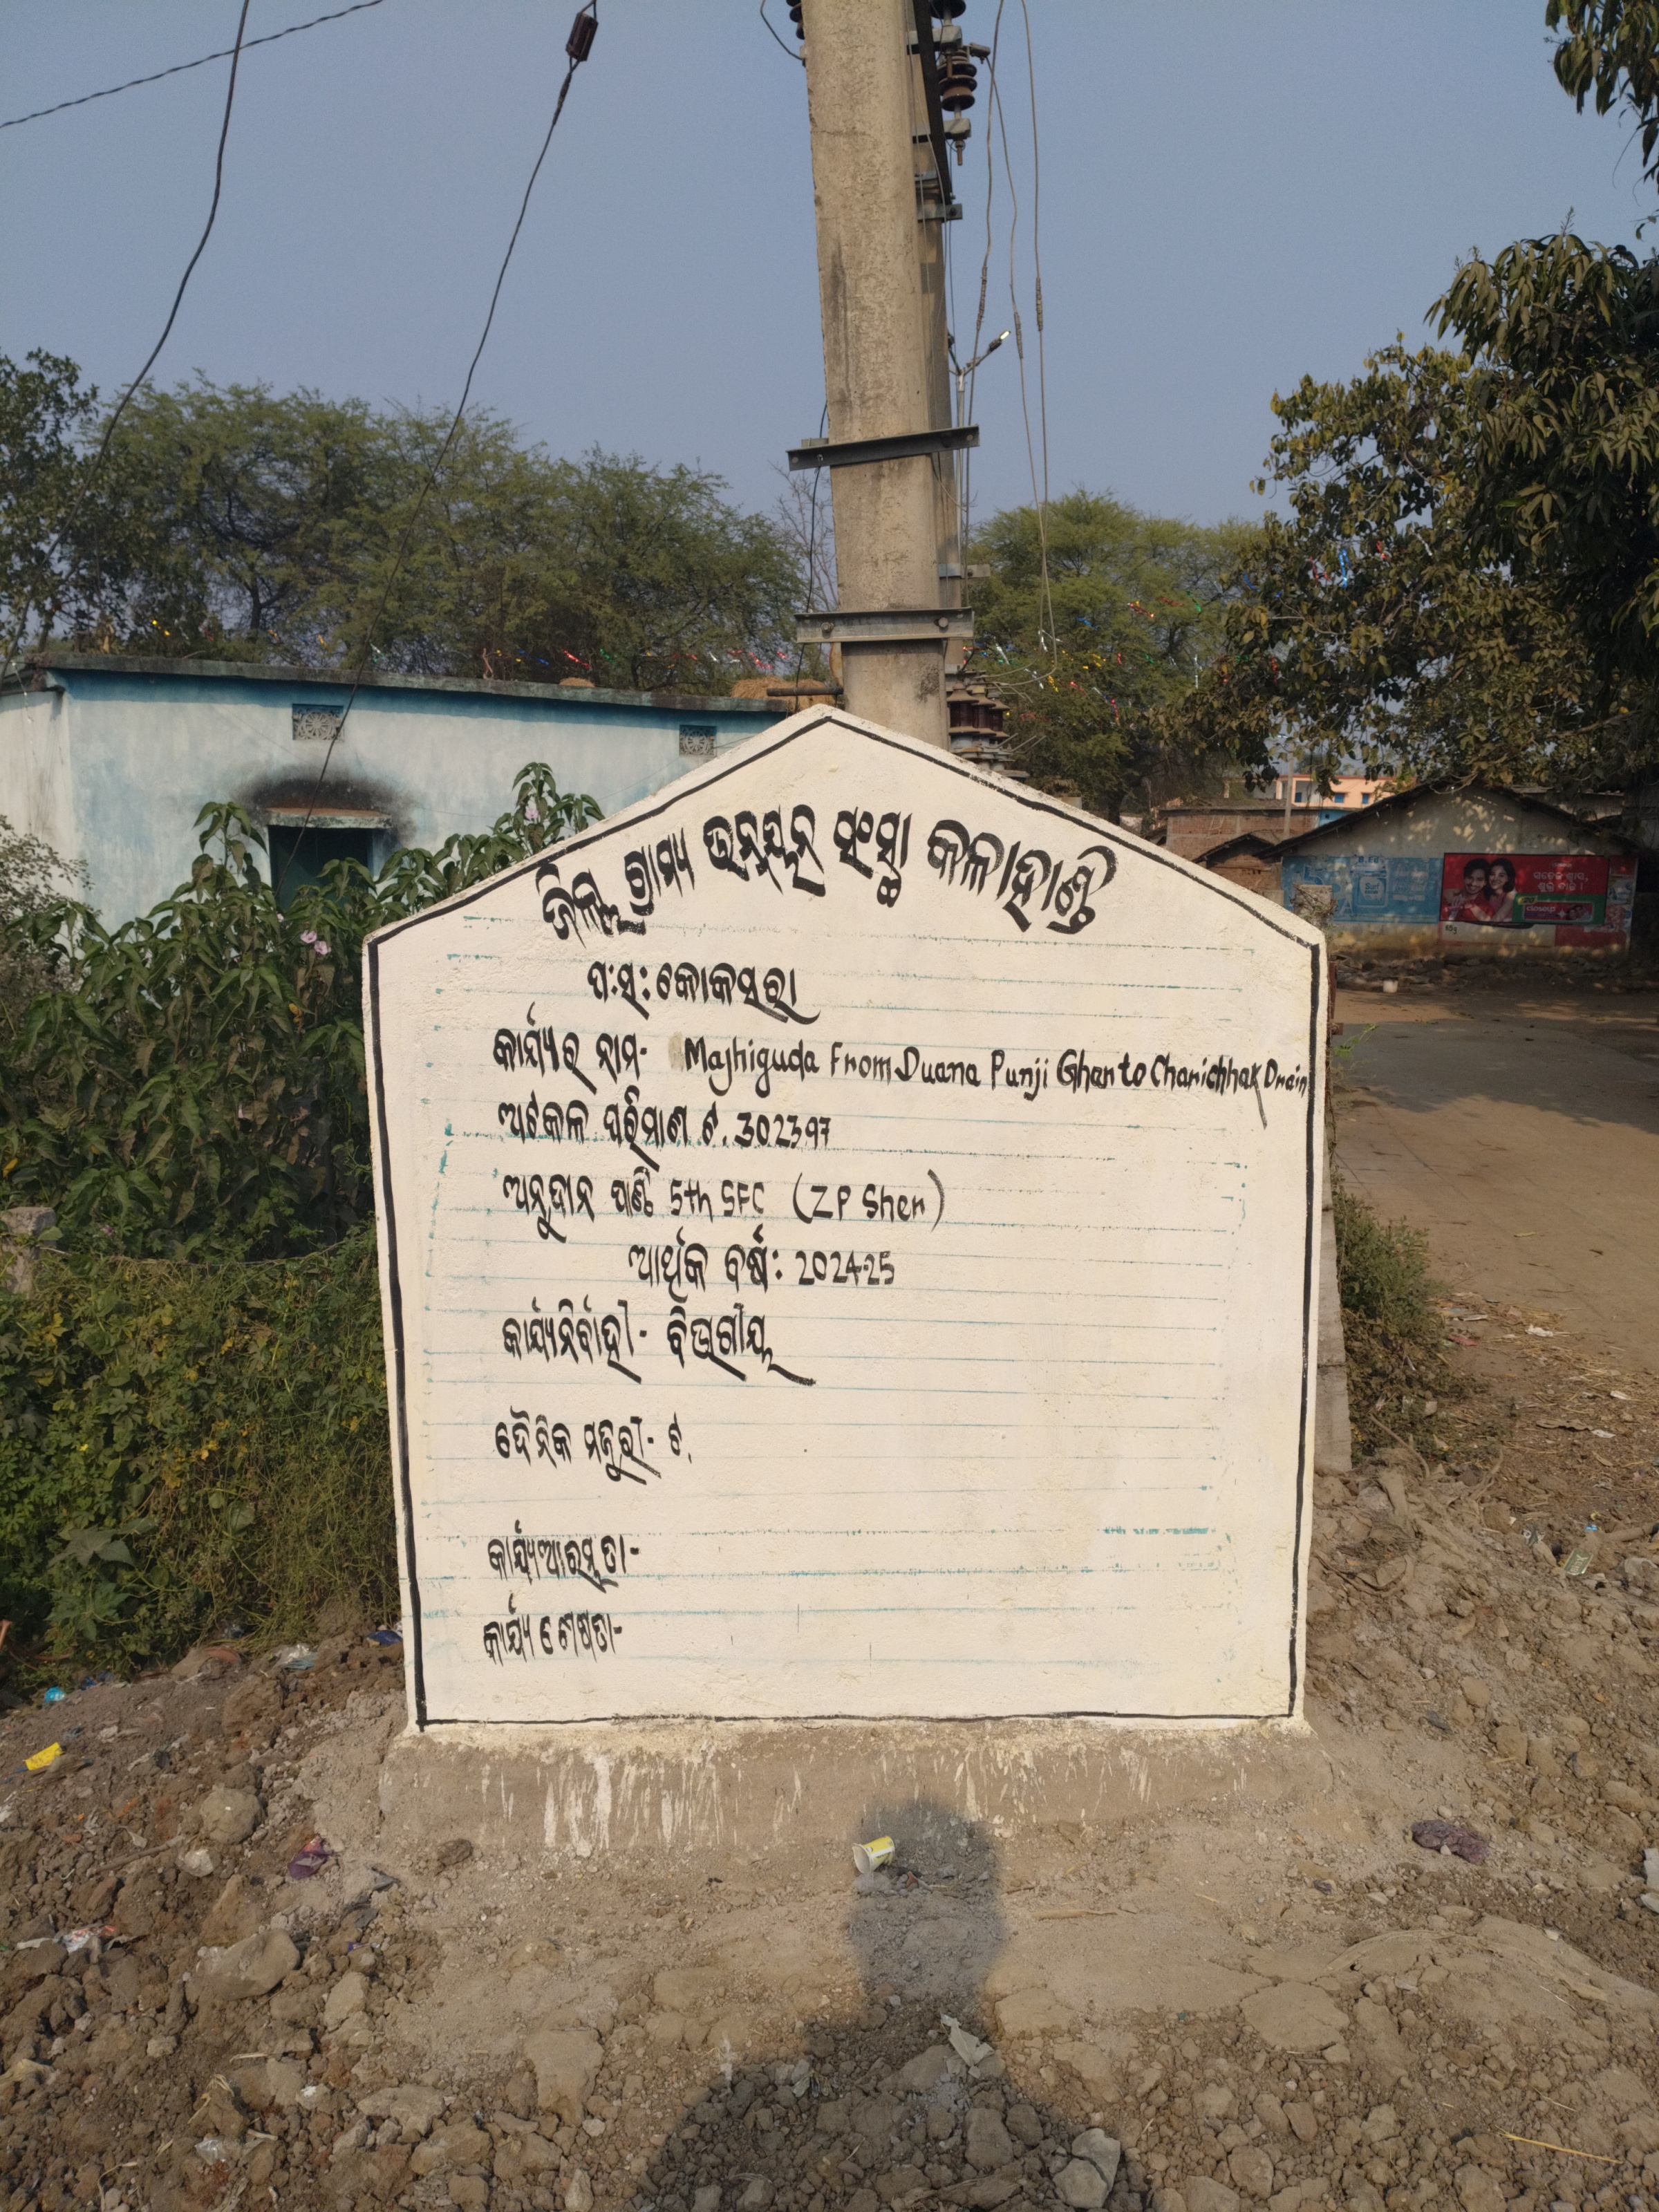 ଜିଲ୍ଲା ଗ୍ରାମ୍ୟ ଉନ୍ନୟନ ସଂସ୍ଥା କଳାହାଣ୍ଡି
ପଃସଃ କୋକସରା
କାର୍ଯ୍ୟର ନାମ- Majhiguda From Duana Punji Ghar to Charichhak Drain
ଅଟକଳ ପରିମାଣ ଟ. 302397
ଅନୁଦାନ ପାଣ୍ଠି 5th SFC (ZP Sher)
ଆର୍ଥିକ ବର୍ଷ: 2024-25
କାର୍ଯ୍ୟନିର୍ବାହୀ- ବିଭାଗୀୟ
ଦୈନିକ ମଜୁରୀ- ଟ.
କାର୍ଯ୍ୟଆରମ୍ଭ ତା-
କାର୍ଯ୍ୟ ଶେଷତା-
closeup